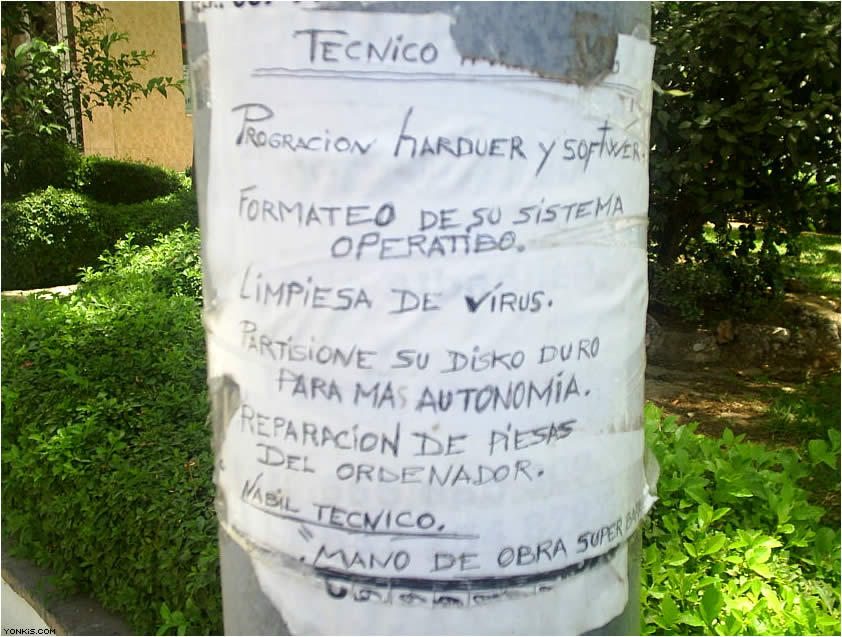 TECNICO
PROGRACION HARDUER Y SOFTWER.
FORMATEO DE SU SISTEMA
OPERATIBO.
LIMPIESA DE VÍRUS.
PARTISIONE SU DISKO DURO
PARA MAS AUTONOMÍA.
REPARACION DE PIESAS
DEL ORDENADOR.
NABIL TECNICO.
MANO DE OBRA SUPER
YONKIS.COM